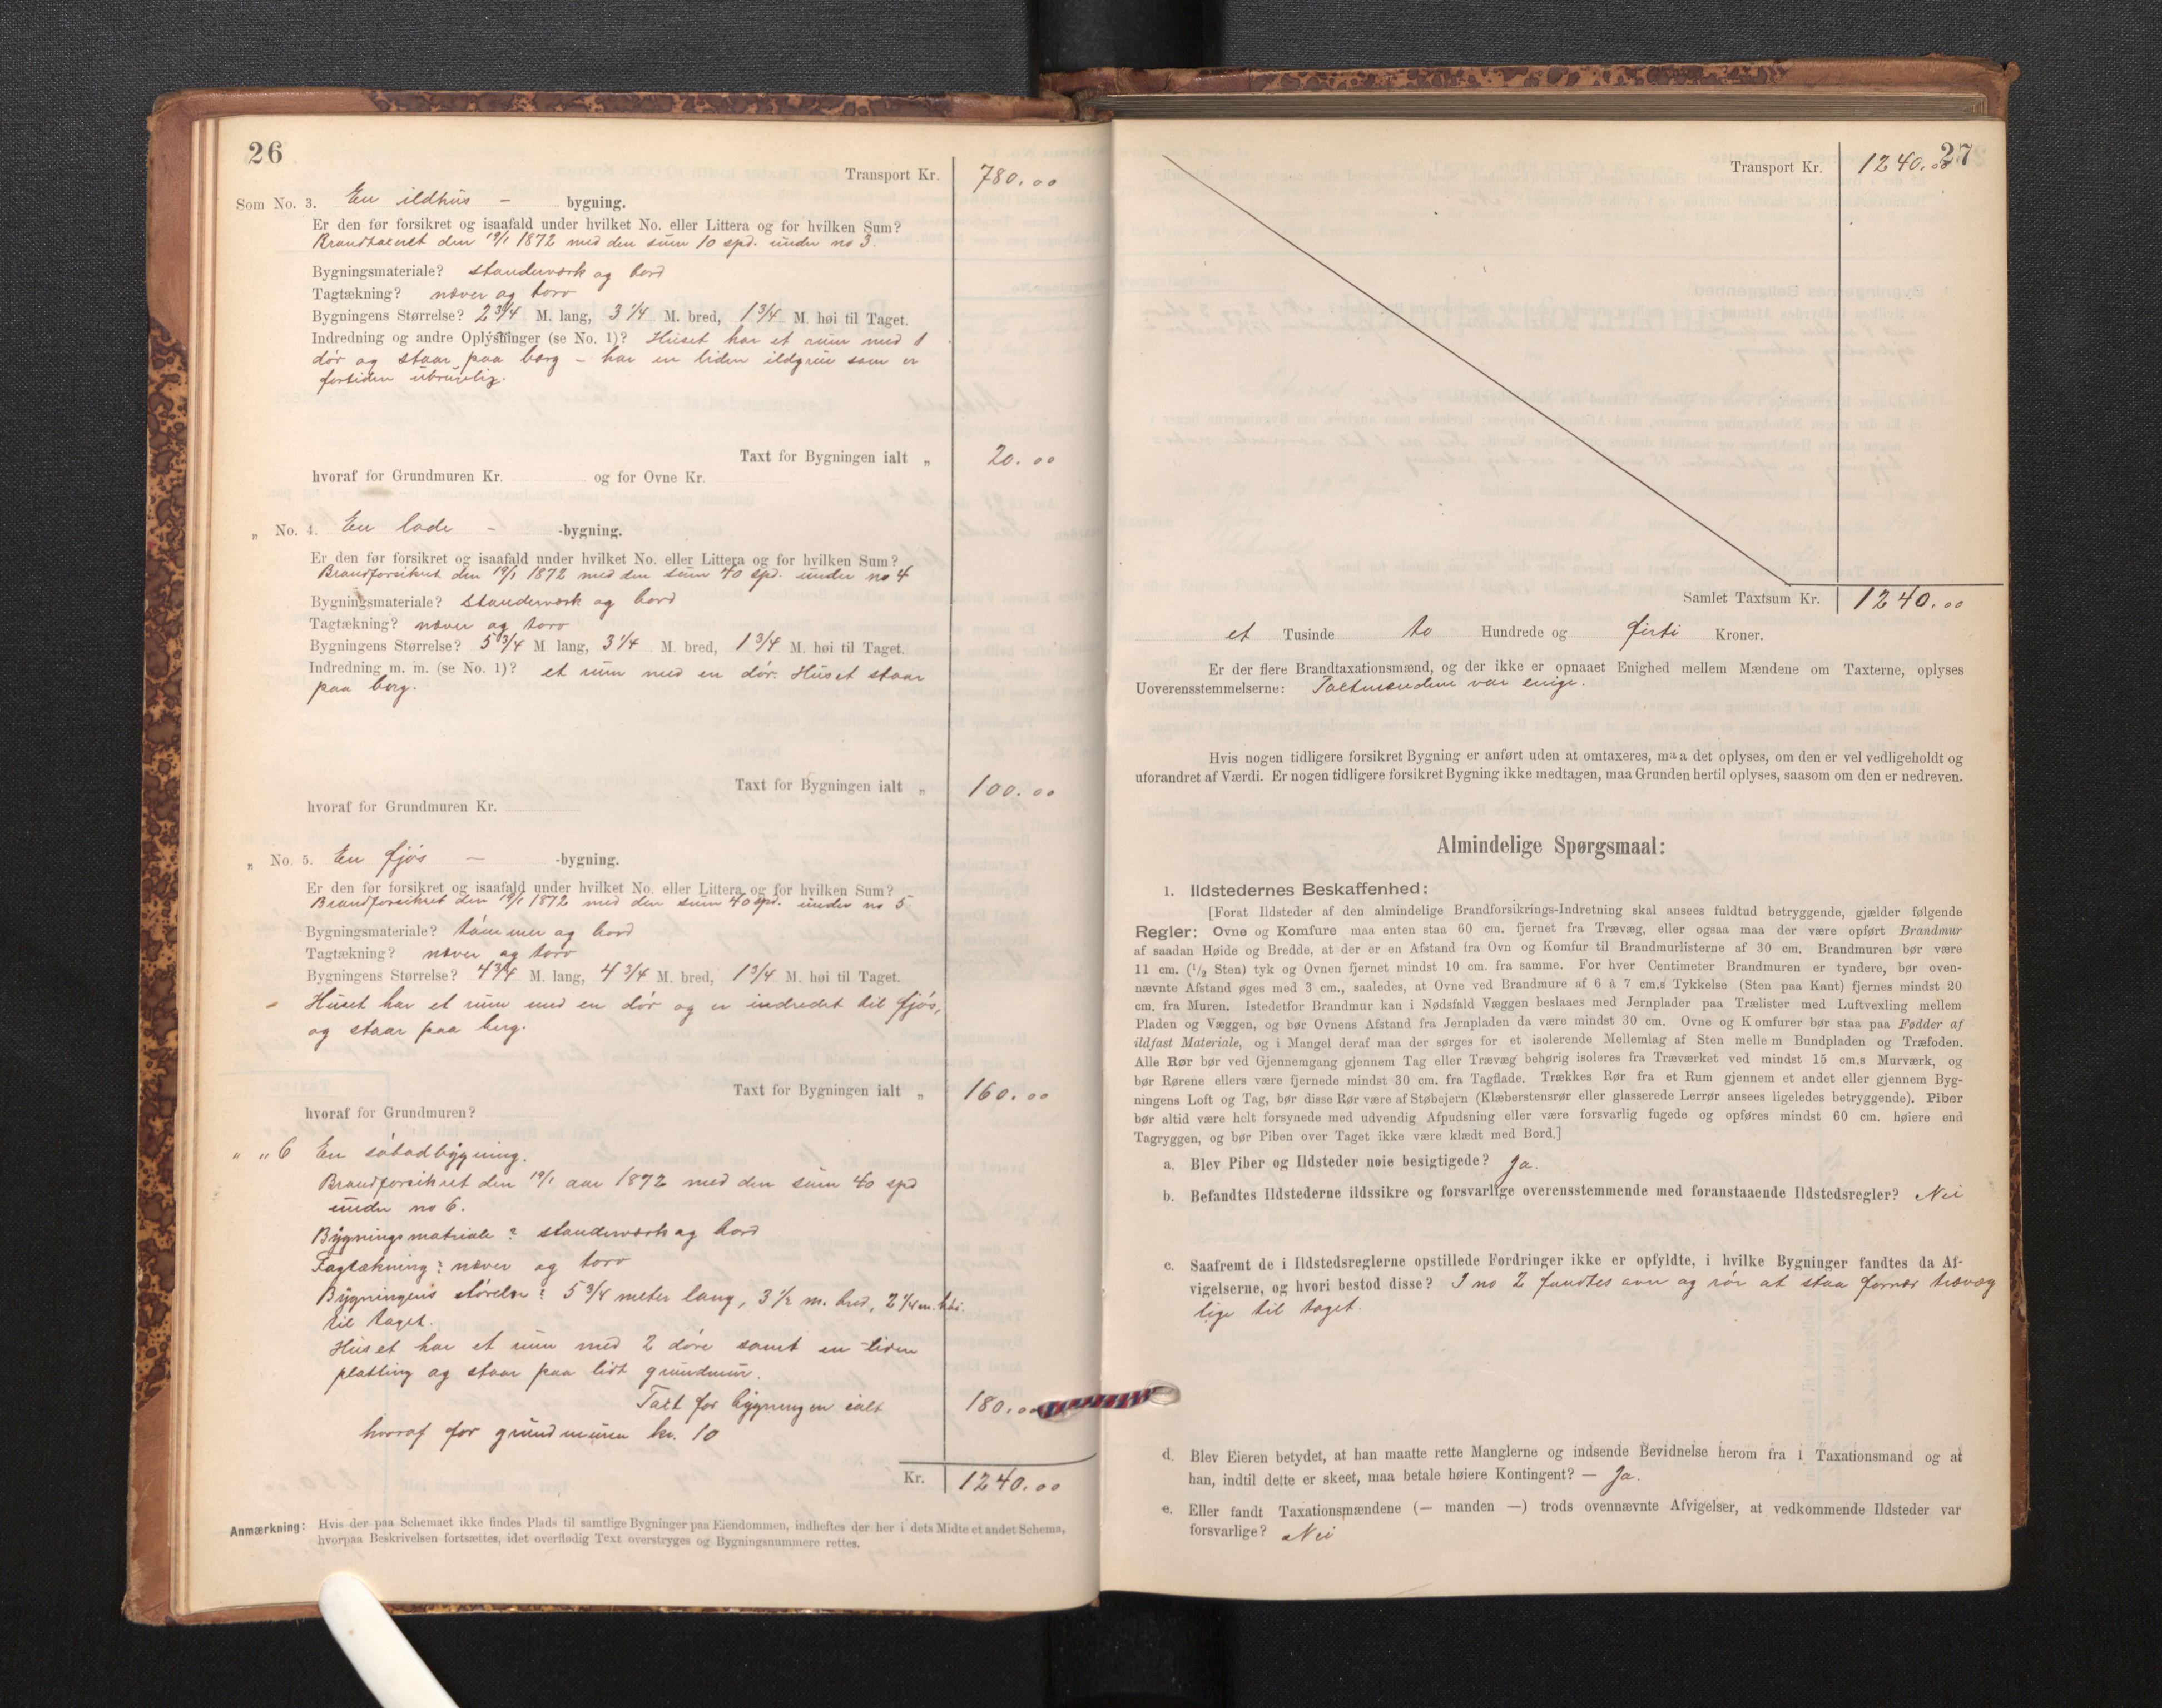 26
Transport Kr. 780.00
Som No. 3. En ildhus - bygning.
Er den før forsikret og isaafald under hvilket No. eller Littera og for hvilken Sum?
Brandtaxeret den 19/1 1872 med den sum 10 spd. under no 3.
Bygningsmateriale? standerværk og bord
Tagtækning? næver og torv
Bygningens Størrelse? 2 3/4 M. lang, 3 1/4 M. bred, 1 3/4 M. høi til Taget.
Indredning og andre Oplysninger (se No. 1)? Huset har et rum med 1
dør og staar paa berg - har en liden ildgrue som er
fortiden ubrugelig.
Taxt for Bygningen ialt „ 20.00
hvoraf for Grundmuren Kr. og for Ovne Kr.
„ No. 4. En lade - -bygning.
Er den før forsikret og isaafald under hvilket No. eller Littera og for hvilken Sum?
Brandforsikret den 19/1 1872 med den sum 40 spd. under no 4
Bygningsmateriale? standerværk og bord
Tagtækning? næver og torv
Bygningens Størrelse? 5 3/4 M. lang, 3 1/4 M. bred, 1 3/4 M. høi til Taget.
Indredning m. m. (se No. 1)? et rum med en dør. Huset staar
paa berg.
Taxt for Bygningen ialt „ 100.00
hvoraf for Grundmuren Kr.
„ No. 5. En fjøs - -bygning.
Er den før forsikret og isaafald under hvilket No. eller Littera og for hvilken Sum?
Brandforsikret den 19/1 1872 med den sum 40 spd. under no 5
Bygningsmateriale? tømmer og bord
Tagtækning? næver og torv
Bygningens Størrelse? 4 3/4 M. lang, 4 3/4 M. bred, 1 3/4 M. høi til Taget.
- Huset har et rum med en dør og er indredet til fjøs,
og staar paa berg.
Taxt for Bygningen ialt „ 160.00
hvoraf for Grundmuren?
„ „ 6 En søbodbygning.
Brandforsikret den 19/1 aar 1872 med den sum 40 spd
under no 6.
Bygningsmatriale? standerværk og bord
Tagtækning? næver og torv
Bygningens størelse? 5 3/4 meter lang, 3 1/2 m. bred, 2 1/4 m. høi
til taget.
Huset har et rum med 2 døre samt en liden
platting og staar paa lidt grundmur.
Taxt for bygningen ialt 180.00
hvoraf for grundmuren kr. 10
Kr. 1240.00
Anmærkning: Hvis der paa Schemaet ikke findes Plads til samtlige Bygninger paa Eiendommen, indheftes der her i dets Midte et andet Schema,
hvorpaa Beskrivelsen fortsættes, idet overflødig Text overstryges og Bygningsnummere rettes.
27
Transport Kr. 1240.00
Samlet Taxtsum Kr. 1240.00
et Tusinde to Hundrede og firti Kroner.
Er der flere Brandtaxationsmænd, og der ikke er opnaaet Enighed mellem Mændene om Taxterne, oplyses
Uoverensstemmelserne: Taxtmændene var enige.
Hvis nogen tidligere forsikret Bygning er anført uden at omtaxeres, maa det oplyses, om den er vel vedligeholdt og
uforandret af Værdi. Er nogen tidligere forsikret Bygning ikke medtagen, maa Grunden hertil oplyses, saasom om den er nedreven.
Almindelige Spørgsmaal:
1. Ildstedernes Beskaffenhed:
[Forat Ildsteder af den almindelige Brandforsikrings-Indretning skal ansees fuldtud betryggende, gjælder følgende
Regler: Ovne og Komfure maa enten staa 60 cm. fjernet fra Trævæg, eller ogsaa maa der være opført Brandmur
af saadan Høide og Bredde, at der er en Afstand fra Ovn og Komfur til Brandmurlisterne af 30 cm. Brandmuren bør være
11 cm. (1/2 Sten) tyk og Ovnen fjernet mindst 10 cm. fra samme. For hver Centimeter Brandmuren er tyndere, bør oven-
nævnte Afstand øges med 3 cm., saaledes, at Ovne ved Brandmure af 6 à 7 cm.s Tykkelse (Sten paa Kant) fjernes mindst 20
cm. fra Muren. Istedetfor Brandmur kan i Nødsfald Væggen beslaaes med Jernplader paa Trælister med Luftvexling mellem
Pladen og Væggen, og bør Ovnens Afstand fra Jernpladen da være mindst 30 cm. Ovne og Komfurer bør staa paa Fødder af
ildfast Materiale, og i Mangel deraf maa der sørges for et isolerende Mellemlag af Sten mellem Bundpladen og Træfoden.
Alle Rør bør ved Gjennemgang gjennem Tag eller Trævæg behørig isoleres fra Træværket ved mindst 15 cm.s Murværk, og
bør Rørene ellers være fjernede mindst 30 cm. fra Tagflade. Trækkes Rør fra et Rum gjennem et andet eller gjennem Byg-
ningens Loft og Tag, bør disse Rør være af Støbejern (Klæberstensrør eller glasserede Lerrør ansees ligeledes betryggende). Piber
bør altid være helt forsynede med udvendig Afpudsning eller være forsvarlig fugede og opføres mindst 60 cm. høiere end
Tagryggen, og bør Piben over Taget ikke være klædt med Bord.]
a. Blev Piber og Ildsteder nøie besigtigede? Ja.
b. Befandtes Ildstederne ildssikre og forsvarlige overensstemmende med foranstaaende Ildstedsregler? Nei
c. Saafremt de i Ildstedsreglerne opstillede Fordringer ikke er opfyldte, i hvilke Bygninger fandtes da Af-
vigelserne, og hvori bestod disse? I no 2 fandtes ovn og rør at staa fornær trævæg
lige til taget.
d. Blev Eieren betydet, at han maatte rette Manglerne og indsende Bevidnelse herom fra 1 Taxationsmand og at
han, indtil dette er skeet, maa betale høiere Kontingent? — Ja.
e. Eller fandt Taxationsmændene (— manden —) trods ovennævnte Afvigelser, at vedkommende Ildsteder var
forsvarlige? Nei